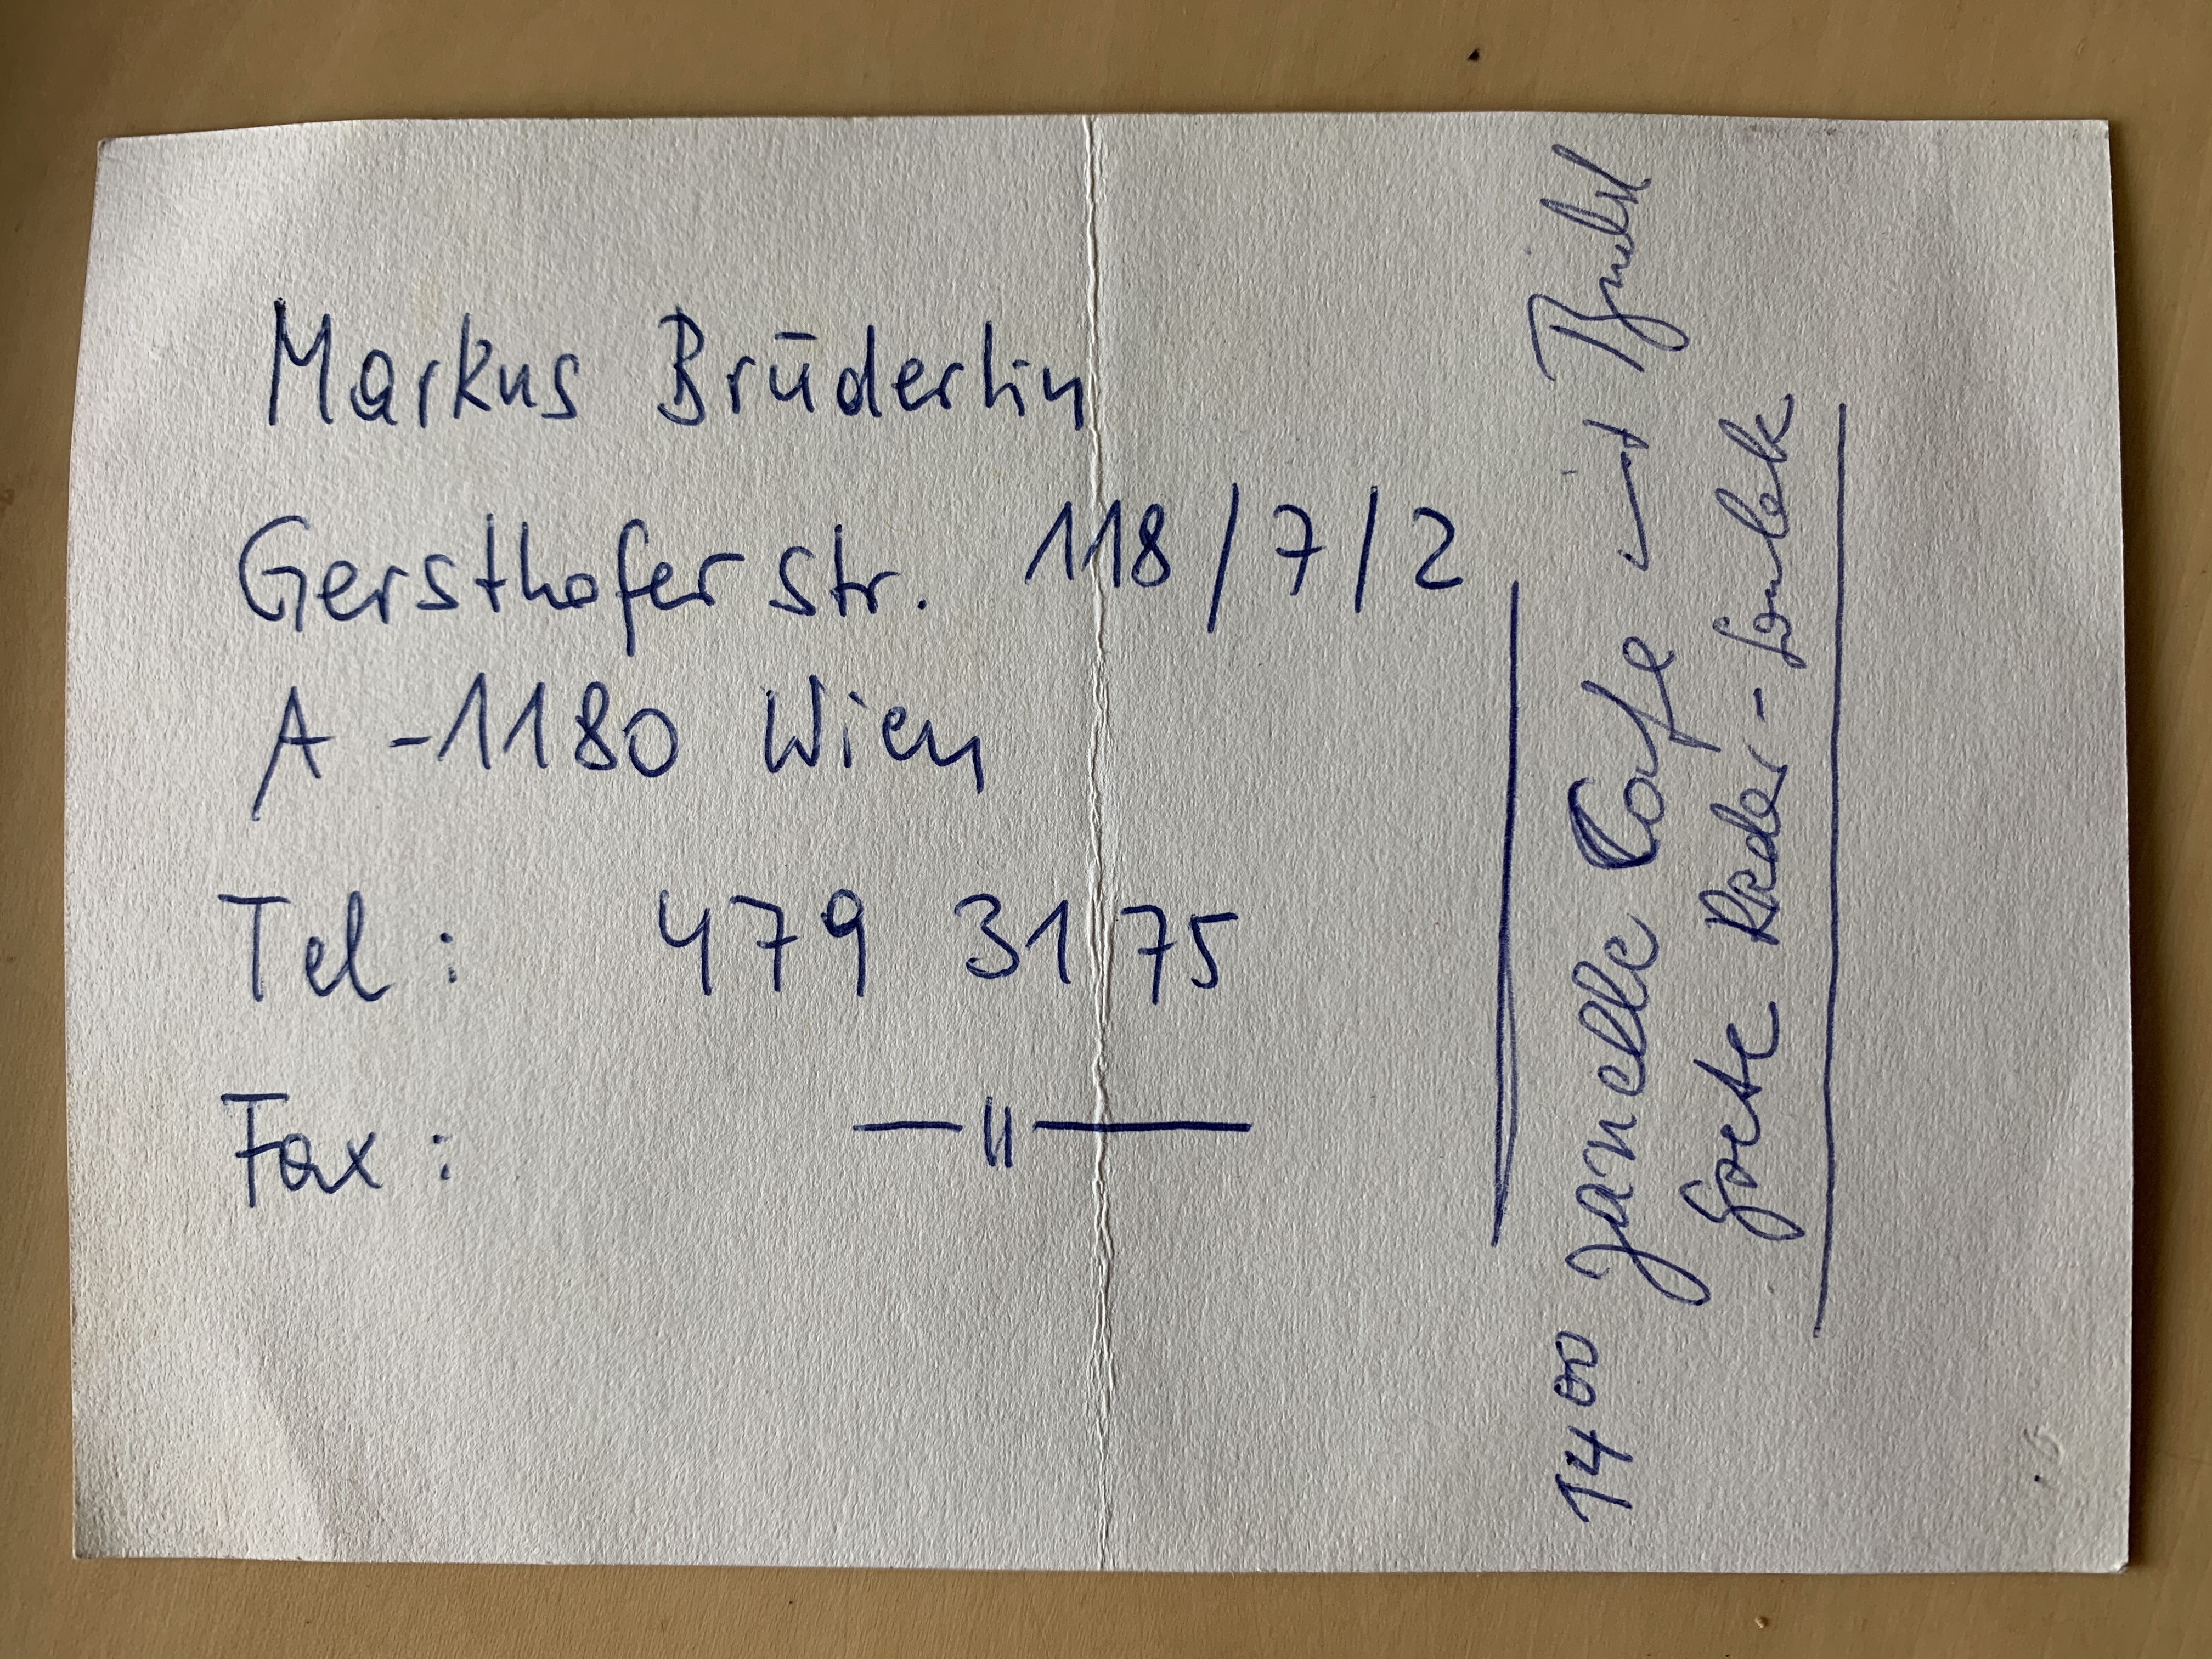 Markus Brüderlin
Gersthofer str. 118/7/2
A-1180 Wien
Tel: 479 31 75
Fax: —〃—
1400 Janelle Cafe mit
Grete